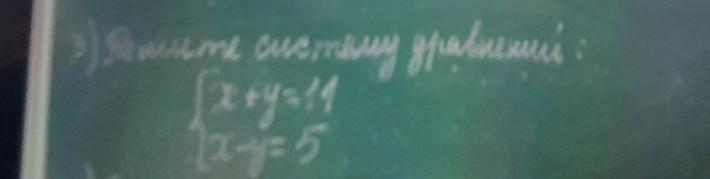 3) Решите систему уравнений:
{x+y=11
{x-y=5